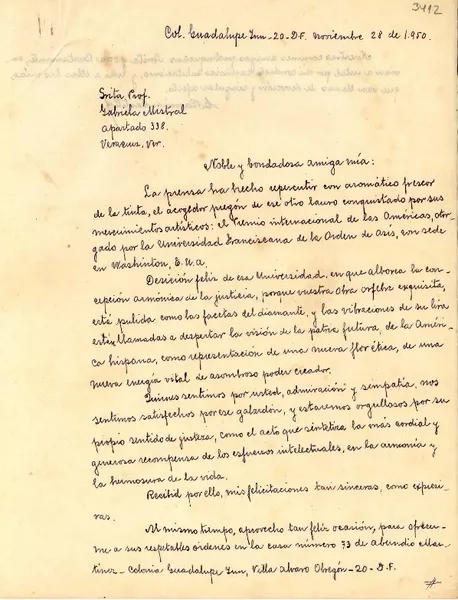 3412
Col. Guadalupe Inn-20-D.F. noviembre 28 de 1.950.
Srita. Prof.
Gabriela Mistral
apartado 338.
Veracruz, Ver.
Noble y bondadosa amiga mía:
La prensa ha hecho repercutir con aromático frescor
de la tinta, el acogedor pregón de ese otro lauro conquistado por sus
merecimientos artísticos: el Premio internacional de Las Américas, otor-
gado por la Universidad Franciscana de la Orden de Asís, con sede
en Washington, E.U.A.
Desición feliz de esa Universidad, en que alborea la con-
cepción armónica de la justicia, porque vuestra obra orfebre exquisita,
está pulida como las facetas del diamante, y las vibraciones de su lira
están llamadas a despertar la visión de la patria futura, de la Améri-
ca hispana, como representación de una nueva flor ética, de una
nueva energía vital de asombroso poder creador.
Quienes sentimos por usted, admiración y simpatía, nos
sentimos satisfechos por ese galardón, y estaremos orgullosos por su
propio sentido de justeza, como el acto que sintetiza la más cordial y
generosa recompensa de los esfuerzos intelectuales, en la armonía y
la hermosura de la vida.
Recibid por ello, mis felicitaciones tan sinceras, como expresi-
vas.
Al mismo tiempo, aprovecho tan feliz ocasión, para ofrecer-
me a sus respetables órdenes en la casa número 73 de Abundio Mar-
tínez - Colonia Guadalupe Inn, Villa Alvaro Obregón-20-D.F.
#